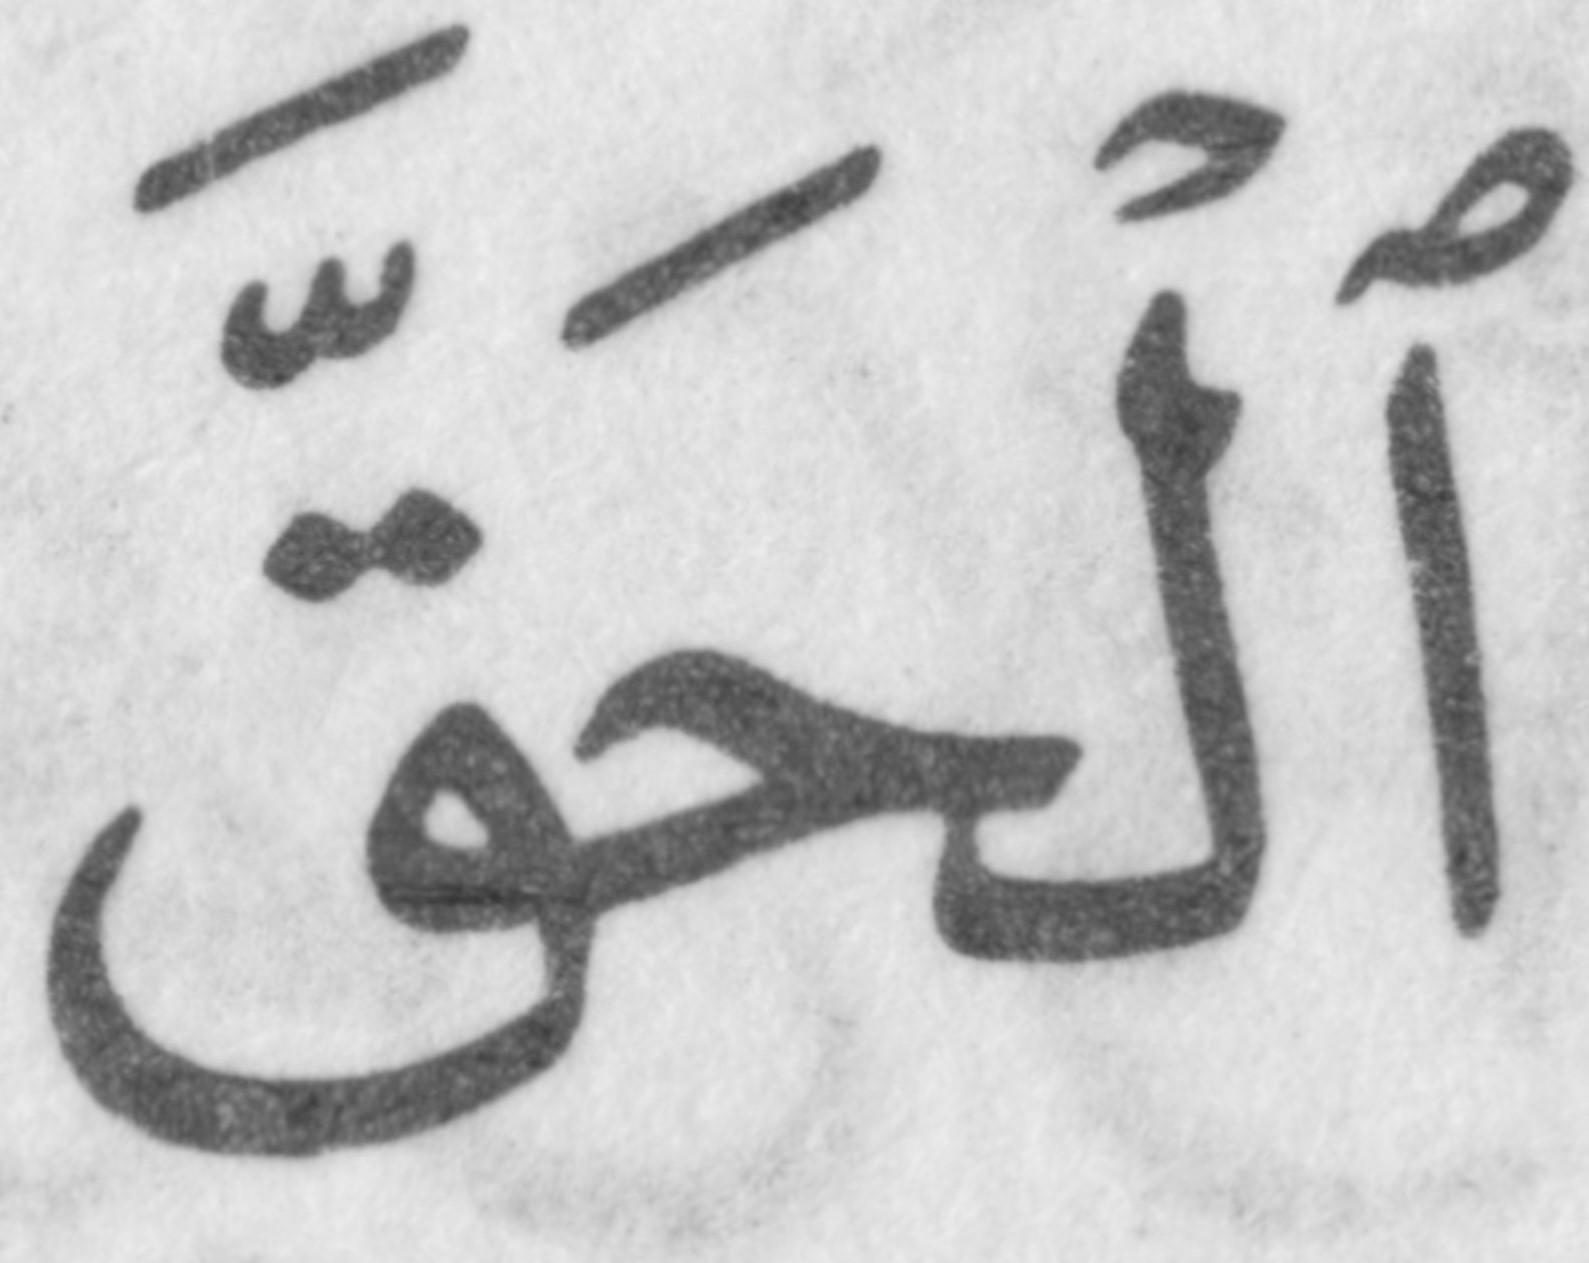 ٱلْحَقَّ